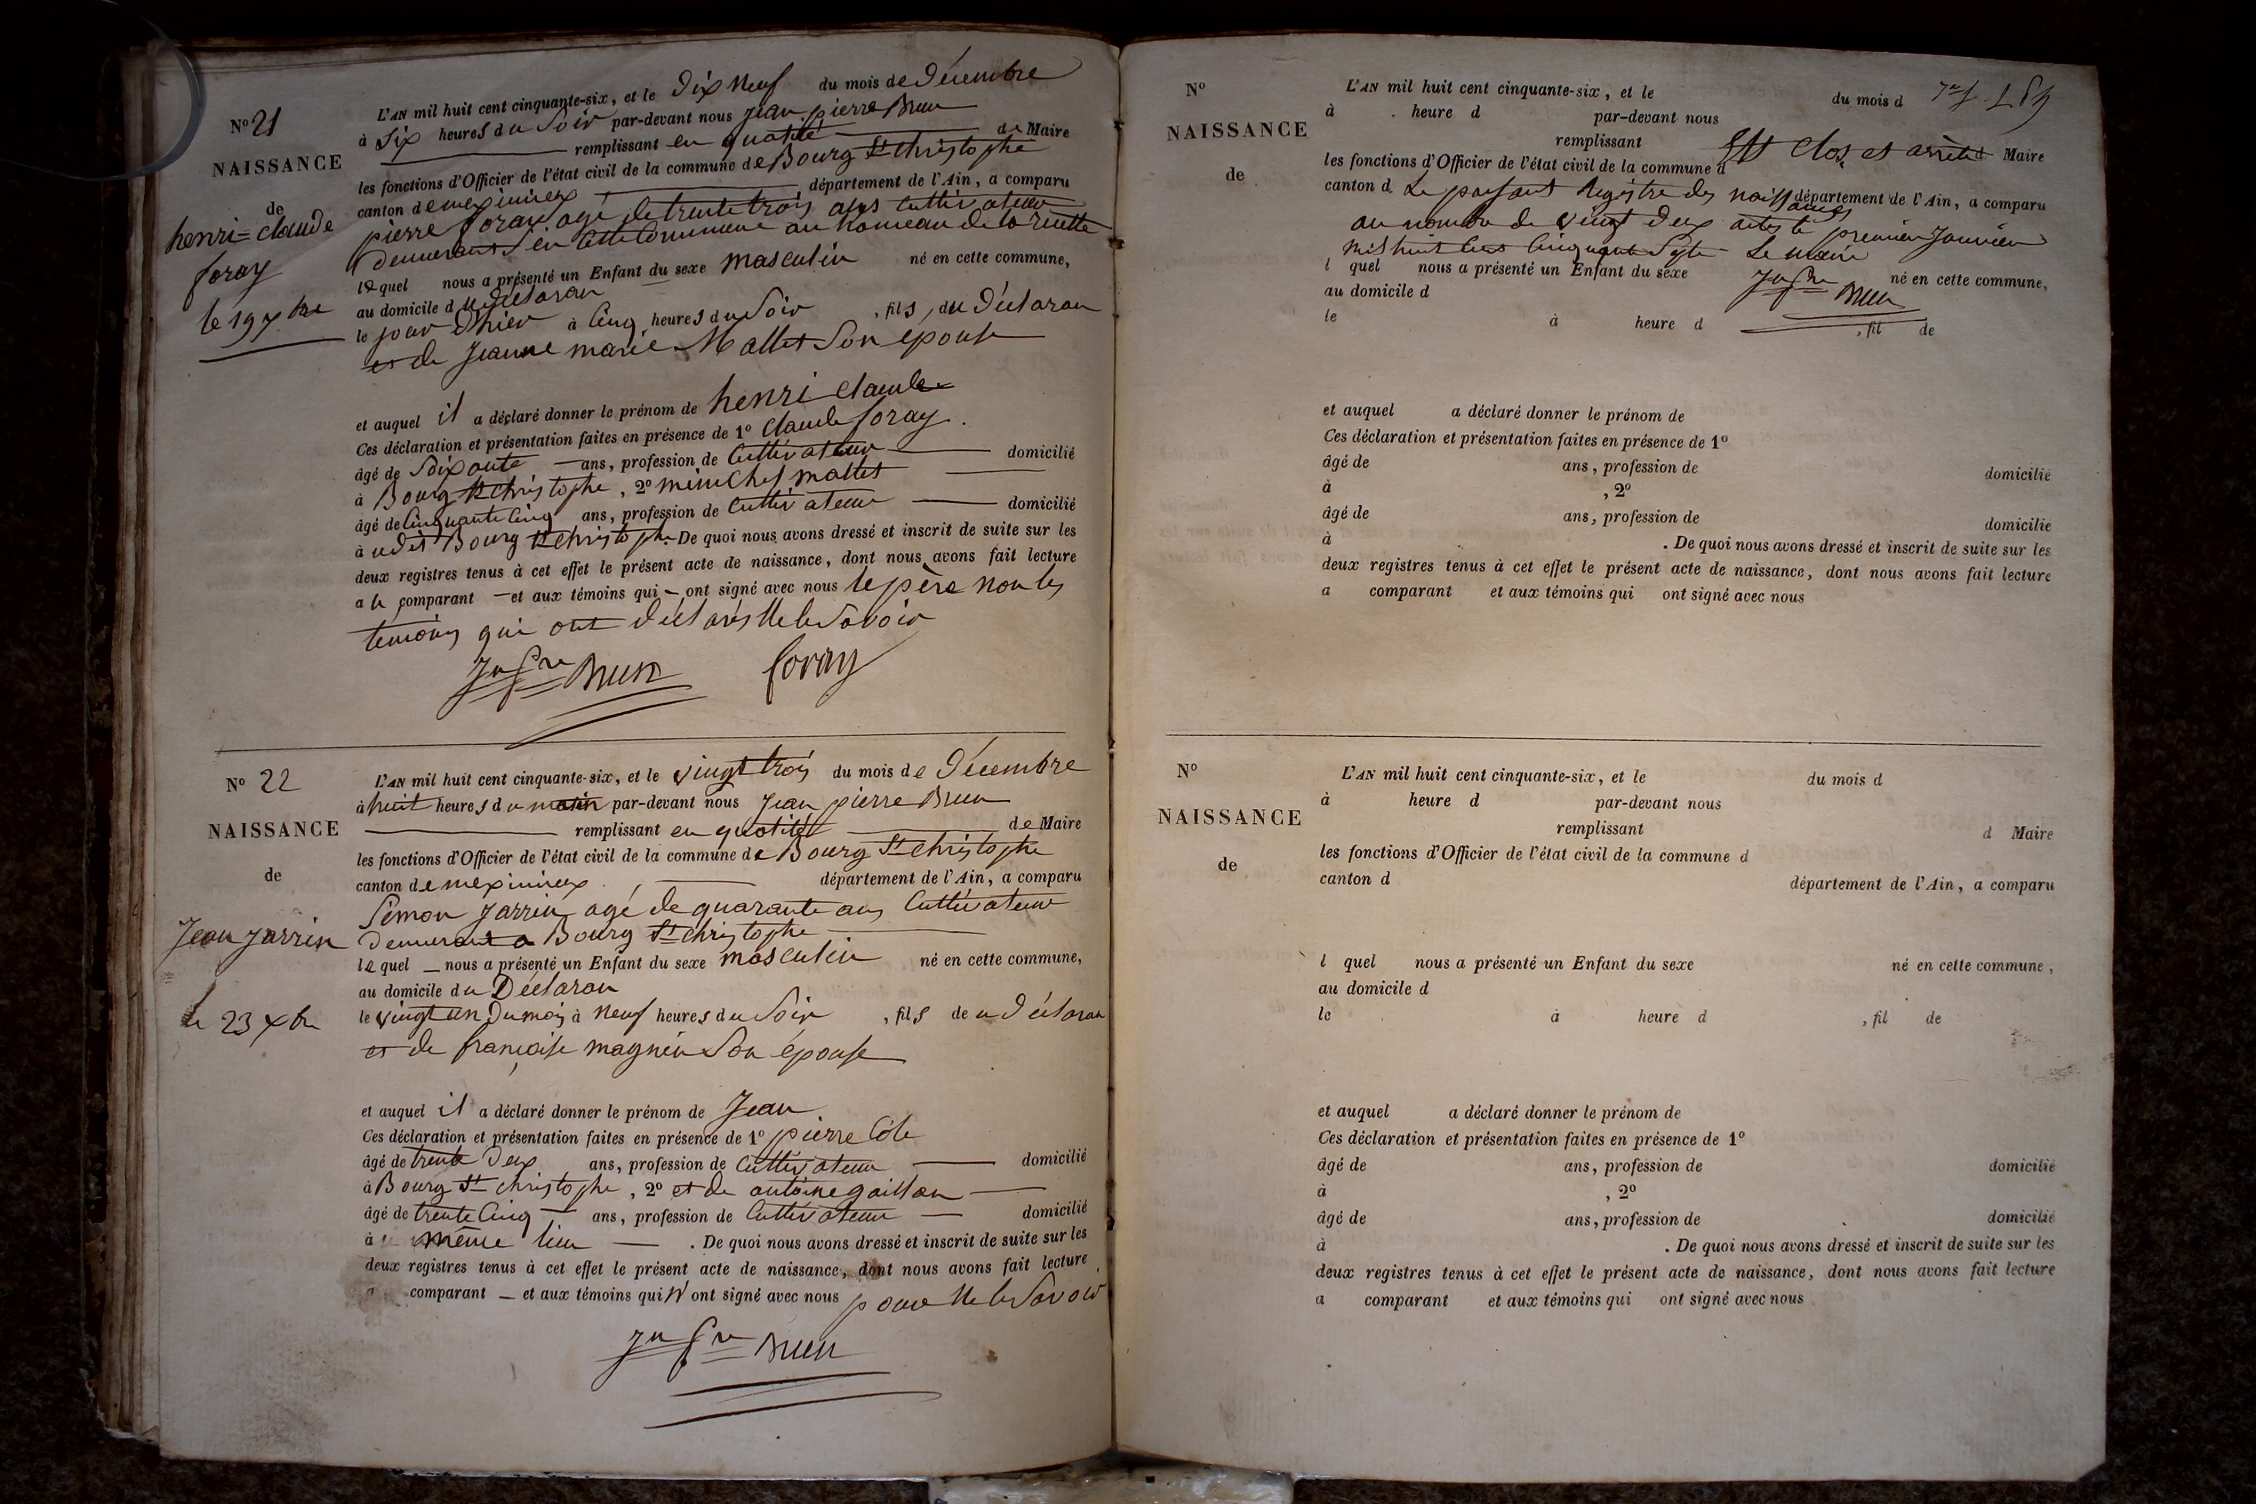 N° 21
NAISSANCE
de
henri = claude
foray
le 19 xbre
L'AN mil huit cent cinquante-six, et le Dix Neuf du mois de Décembre
à Six heures du Soir par-devant nous Jean pierre Brun
remplissant en qualité de Maire
les fonctions d'Officier de l'état civil de la commune de Bourg St christophe
canton de meximieux département de l'Ain, a comparu
pierre foray agé de trente trois ans Cultivateur
Demeurant en Cette Commune au hameau de la ruette
lequel nous a présenté un Enfant du sexe masculin né en cette commune,
au domicile du Déclaran
le jour D'hier à Cinq heures du Soir, fils du Déclaran
et de Jeanne marie Mallet Son épouse
et auquel il a déclaré donner le prénom de henri Claude
Ces déclaration et présentation faites en présence de 1° Claude foray.
âgé de Soixante ans, profession de Cultivateur domicilié
à Bourg St Christophe, 2° Mallet
âgé de Cinquante Cinq ans, profession de Cultivateur domicilié
à udit Bourg St christophe. De quoi nous avons dressé et inscrit de suite sur les
deux registres tenus à cet effet le présent acte de naissance, dont nous avons fait lecture
a u comparant et aux témoins qui ont signé avec nous le père non les
temoins qui ont Déclarés Ne le Savoir
Jn Pre Brun foray
N° 22
NAISSANCE
de
Jean Jarrin
le 23 xbre
L'AN mil huit cent cinquante-six, et le vingt trois du mois de Décembre
à huit heures du matin par-devant nous Jean pierre Brun
remplissant en qualité de Maire
les fonctions d'Officier de l'état civil de la commune de Bourg St christophe
canton de meximieux département de l'Ain, a comparu
Simon Jarrin agé de quarante ans Cultivateur
Demeurant a Bourg St christophe
lequel nous a présenté un Enfant du sexe masculin né en cette commune,
au domicile du Déclaran
le vingt un Du mois à Neuf heures du Soir, fils de u Déclaran
et de françoise magnin Son épouse
et auquel il a déclaré donner le prénom de Jean.
Ces déclaration et présentation faites en présence de 1° pierre
âgé de trente Deux ans, profession de Cultivateur domicilié
à Bourg St christophe, 2° et de antoine
âgé de trente Cinq ans, profession de Cultivateur domicilié
à même lieu. De quoi nous avons dressé et inscrit de suite sur les
deux registres tenus à cet effet le présent acte de naissance, dont nous avons fait lecture
a comparant et aux témoins qui N'ont signé avec nous pour Ne le Savoir
Jn Pre Brun
N°
NAISSANCE
de
L'AN mil huit cent cinquante-six, et le du mois d
à heure d par-devant nous
remplissant Est Clos et arrêté d Maire
les fonctions d'Officier de l'état civil de la commune d
canton d Le présent Registre des naissances département de l'Ain, a comparu
au nombre de vingt Deux actes le premier Janvier
Mil huit Cent Cinquante Sept Le maire
l quel nous a présenté un Enfant du sexe né en cette commune,
Jn Pre Brun
au domicile d
le à heure d, fil de
et auquel a déclaré donner le prénom de
Ces déclaration et présentation faites en présence de 1°
âgé de ans, profession de domicilié
à, 2°
âgé de ans, profession de domicilié
à. De quoi nous avons dressé et inscrit de suite sur les
deux registres tenus à cet effet le présent acte de naissance, dont nous avons fait lecture
a comparant et aux témoins qui ont signé avec nous
N°
NAISSANCE
de
L'AN mil huit cent cinquante-six, et le du mois d
à heure d par-devant nous
remplissant d Maire
les fonctions d'Officier de l'état civil de la commune d
canton d département de l'Ain, a comparu
l quel nous a présenté un Enfant du sexe né en cette commune,
au domicile d
le à heure d, fil de
et auquel a déclaré donner le prénom de
Ces déclaration et présentation faites en présence de 1°
âgé de ans, profession de domicilié
à, 2°
âgé de ans, profession de domicilié
à. De quoi nous avons dressé et inscrit de suite sur les
deux registres tenus à cet effet le présent acte de naissance, dont nous avons fait lecture
a comparant et aux témoins qui ont signé avec nous